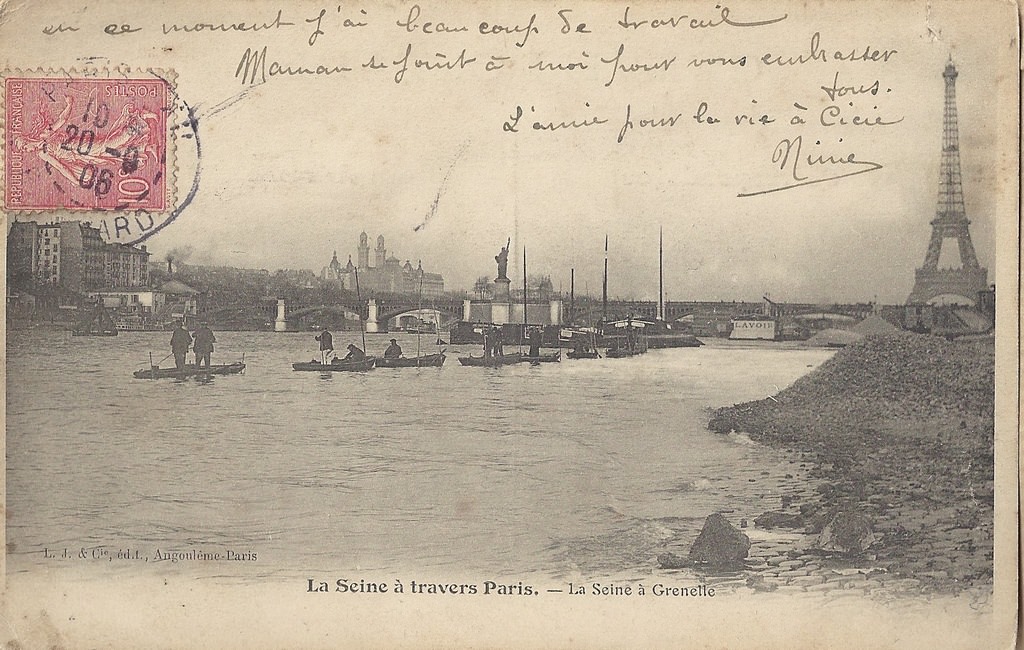 en ce moment j'ai beaucoup de travail
Maman se joint à moi pour vous embrasser
tous.
L'amie pour la vie à Cicie
Ninie
RÉPUBLIQUE FRANÇAISE
POSTES
10
10
20 -9
06
LAVOIR
L. J. & Cie, édit., Angoulême-Paris
La Seine à travers Paris. — La Seine à Grenelle